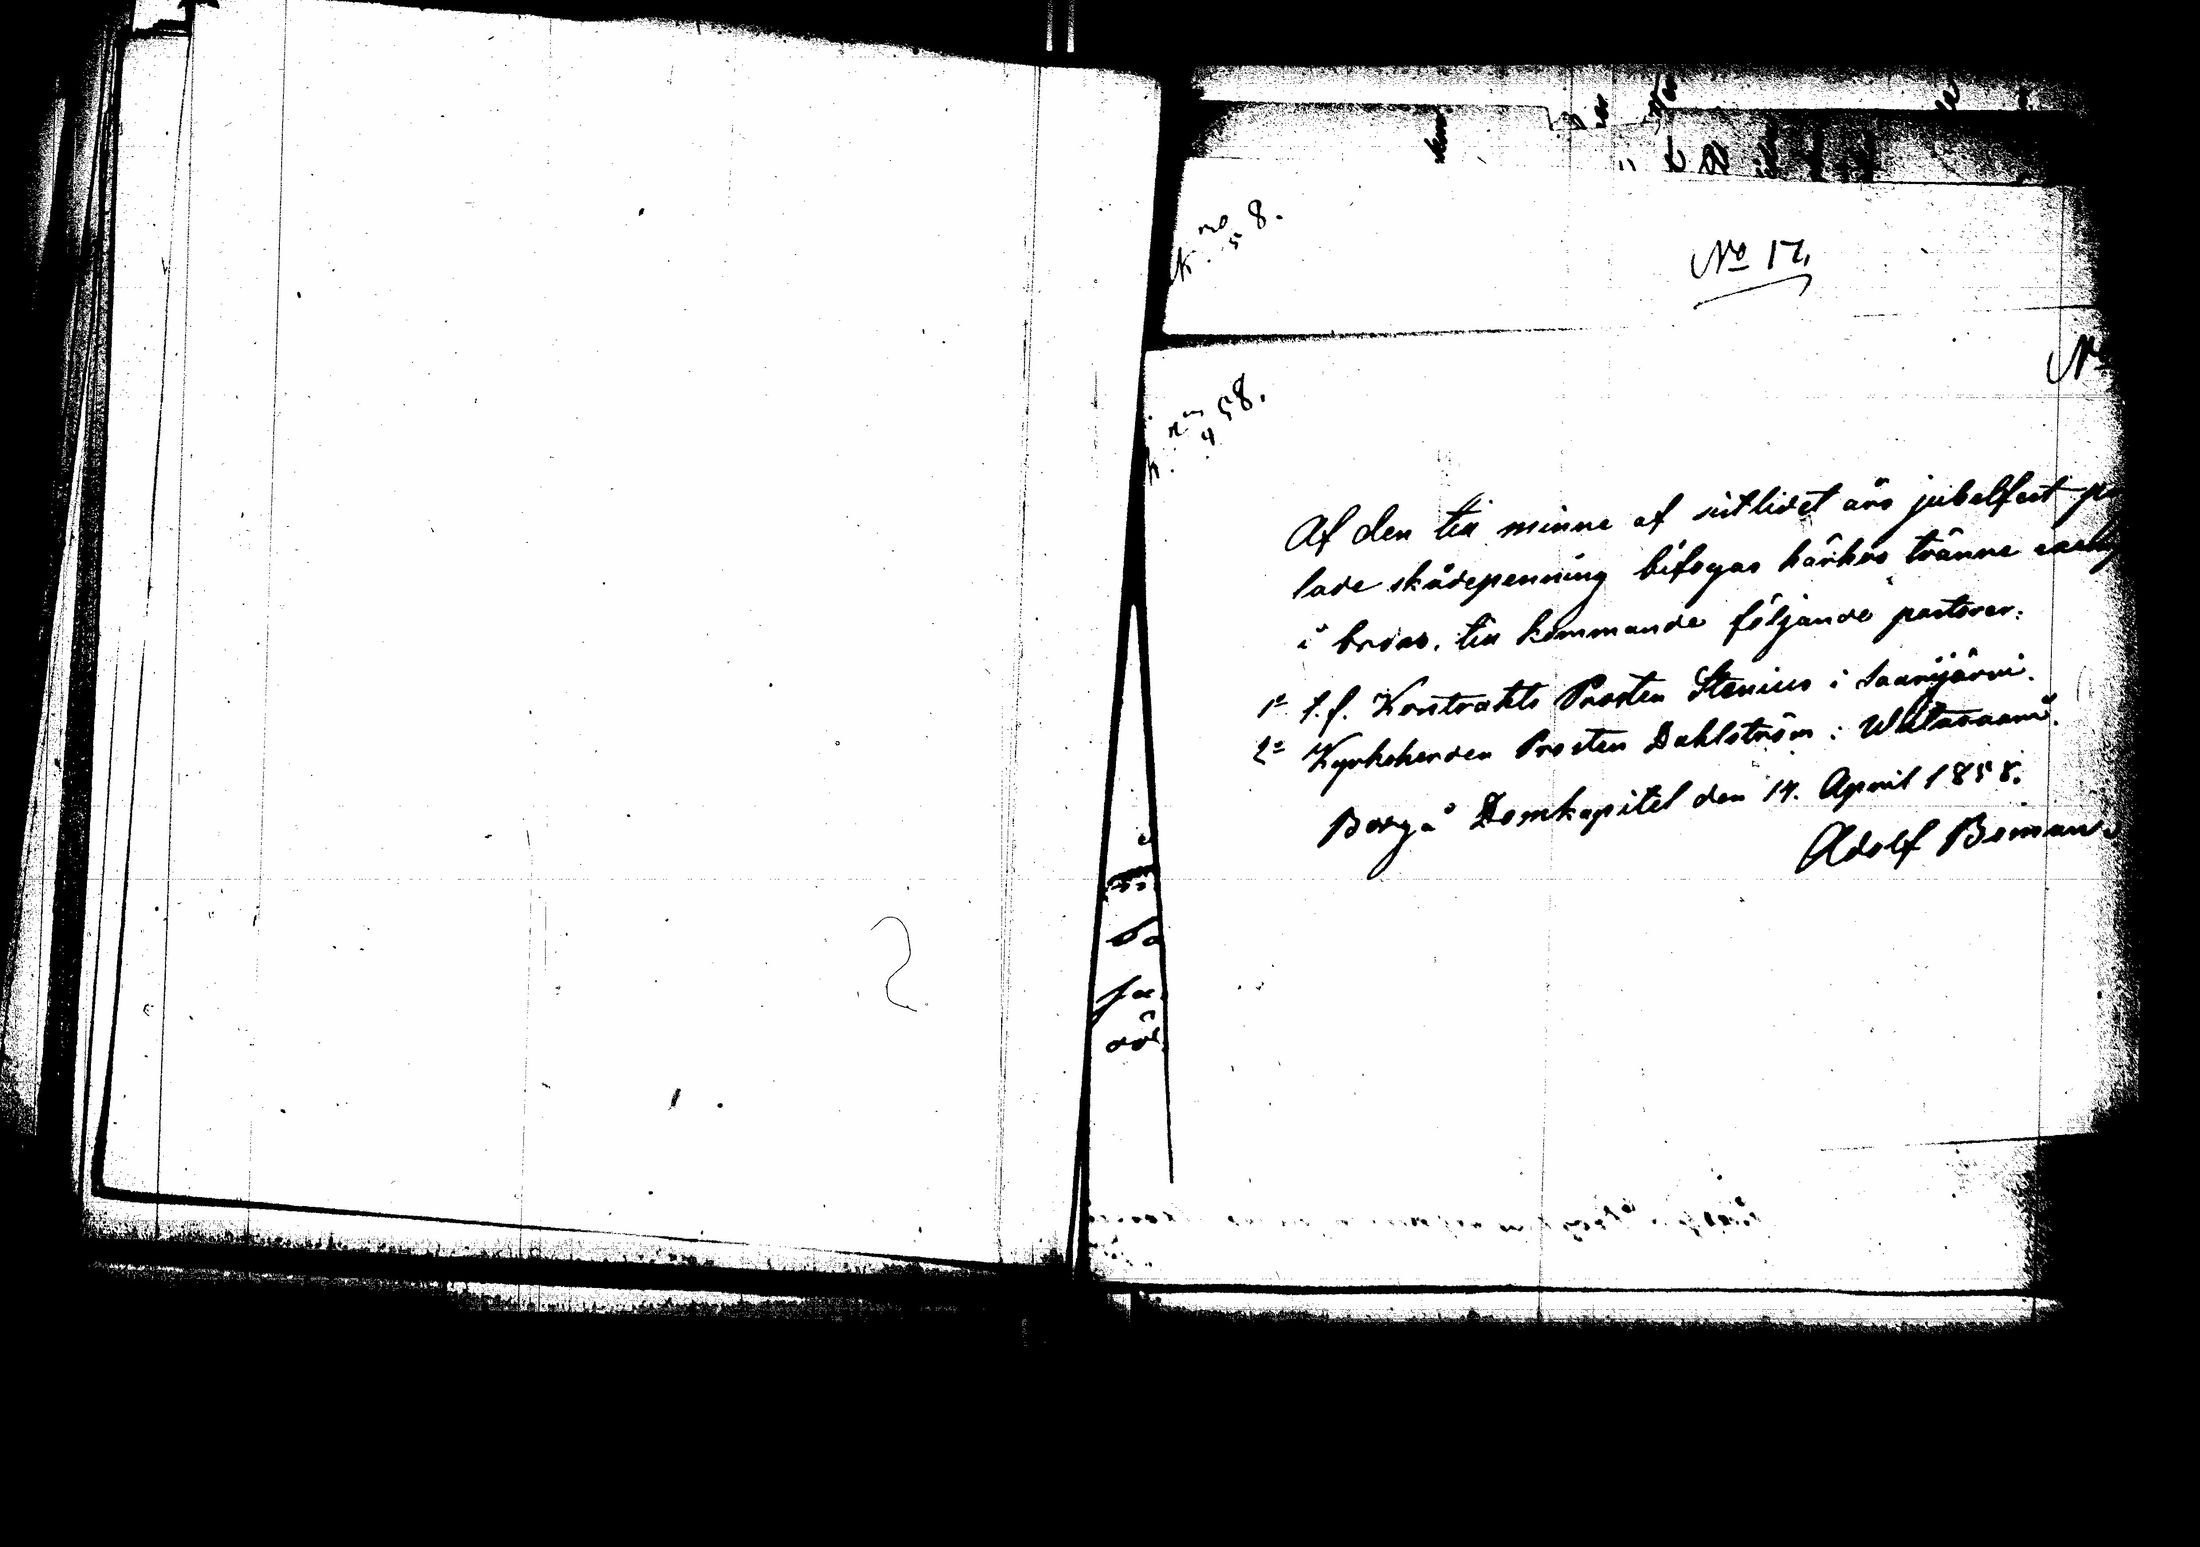 8.
5
No 17.
No
58.
4
Af den till minne af sistlidet års jubelfest
lade skådepenning bifogas härhos tränne
i brons, till kommande följande pastorer:
1o t.f. Kontrakts Prosten Stenius i Saarijärvi.
2o Kyrkoherden Prosten Dahlström i Wiitasaari.
Borgå Domkapitel den 14. April 1858.
Adolf Boman